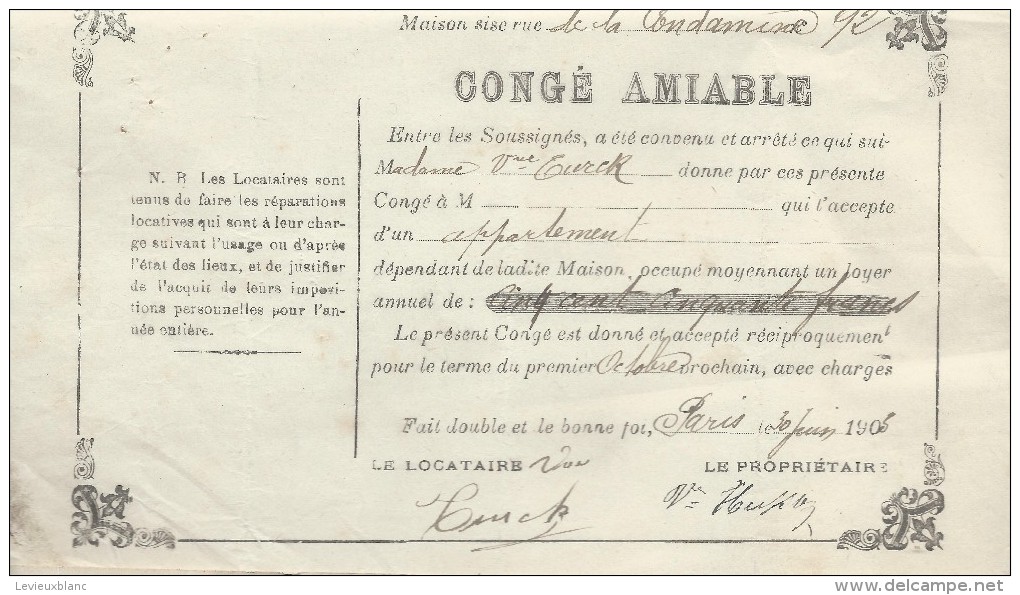 Maison sise rue de la Condamine 92
CONGÉ AMIABLE
Entre les Soussignés, a été convenu et arrêté ce qui suit
Madame Vve Turck donne par ces présente
Congé à M qui l'accepte
d'un appartement
dépendant de ladite Maison, occupé moyennant un loyer
annuel de : Cinq cent cinquante francs
Le présent Congé est donné et accepté réciproquement
pour le terme du premier Octobre prochain, avec charges
Fait double et le bonne foi, Paris le 30 juin 1903
LE LOCATAIRE LE PROPRIÉTAIRE
Turck Vve
N. B. Les Locataires sont
tenus de faire les réparations
locatives qui sont à leur char-
ge suivant l'usage ou d'après
l'état des lieux, et de justifier
de l'acquit de leurs imposi-
tions personnelles pour l'an-
née entière.
Levieuxblanc
© delcampe.net